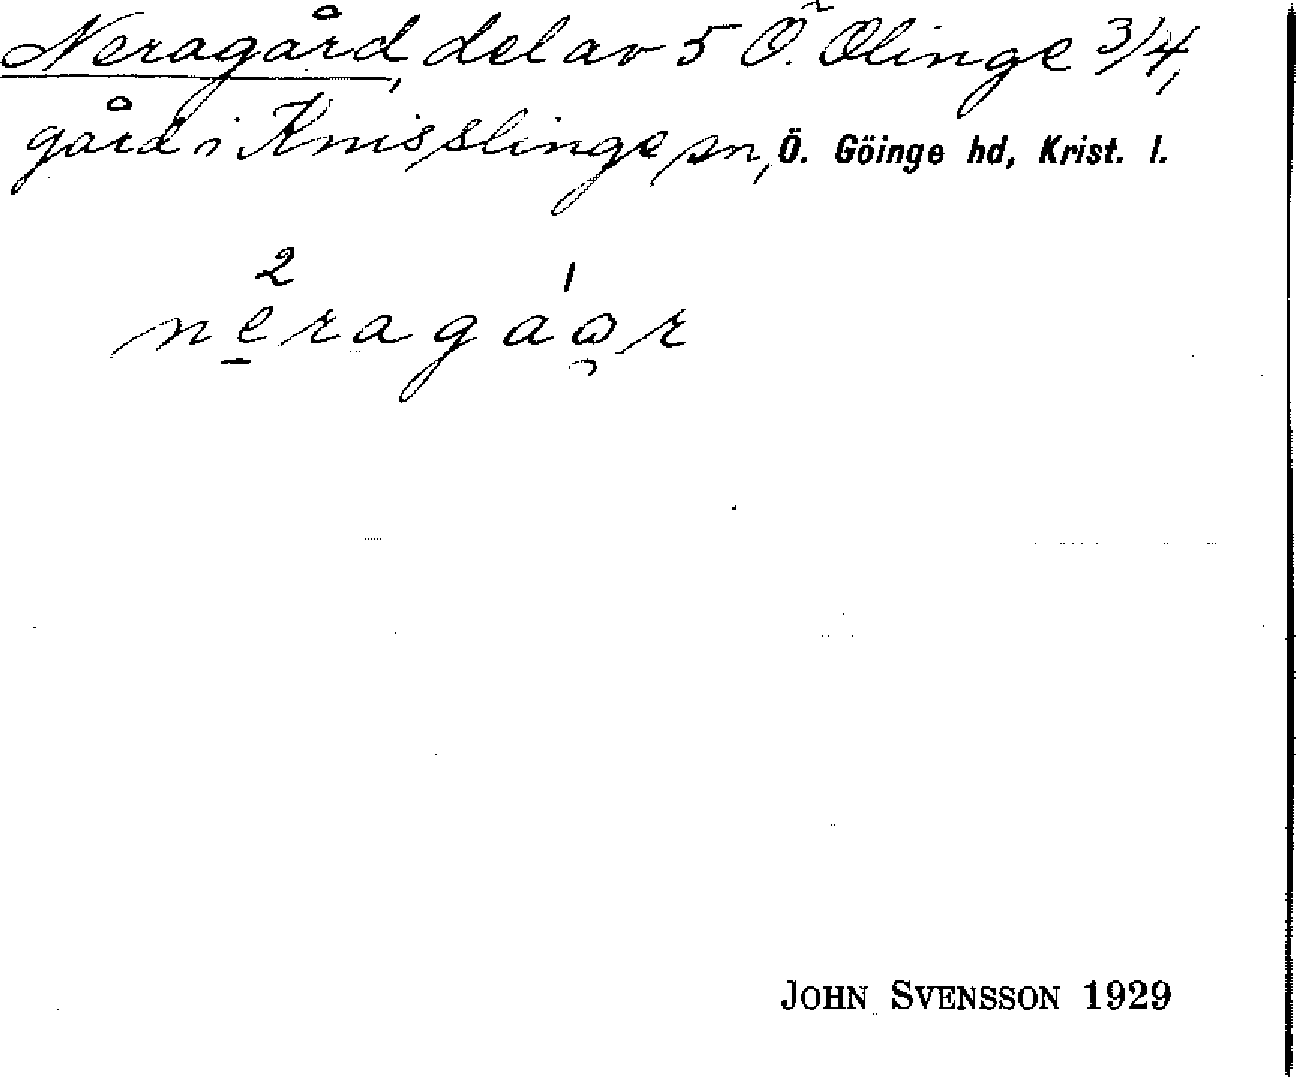 Neragård, del av 5 Ö. Olinge 3/4,
gård i Knisslinge sn, Ö. Göinge hd, Krist. l.
2 1
neragáar
JOHN SVENSSON 1929